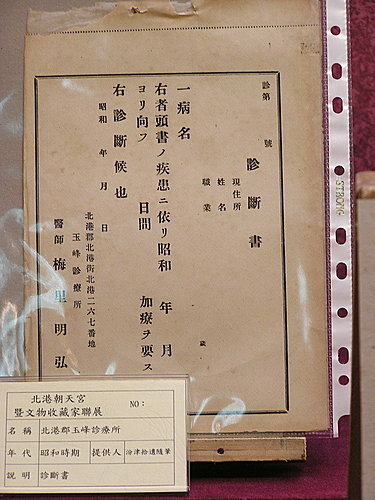 診第 號
診斷書
現住所
姓名
職業
歲
一病名
右者頭書ノ疾患ニ依リ昭和 年 月
ヨリ向フ 日間 加療ヲ要ス
右診斷候也
昭和 年 月 日
北港郡北港街北港二六七番地
玉峰診療所
醫師 梅里明弘
STRONG
北港朝天宮 NO:
暨文物收藏家聯展
名稱 北港郡玉峰診療所
年代 昭和時期 提供人 汾津拾遺隨筆
說明 診斷書